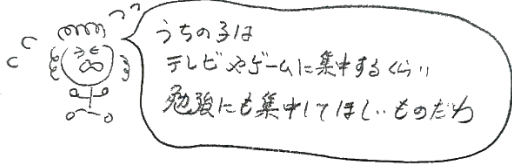 うちの子は
テレビやゲームに集中するくらい
勉強にも集中してほしいものだわ